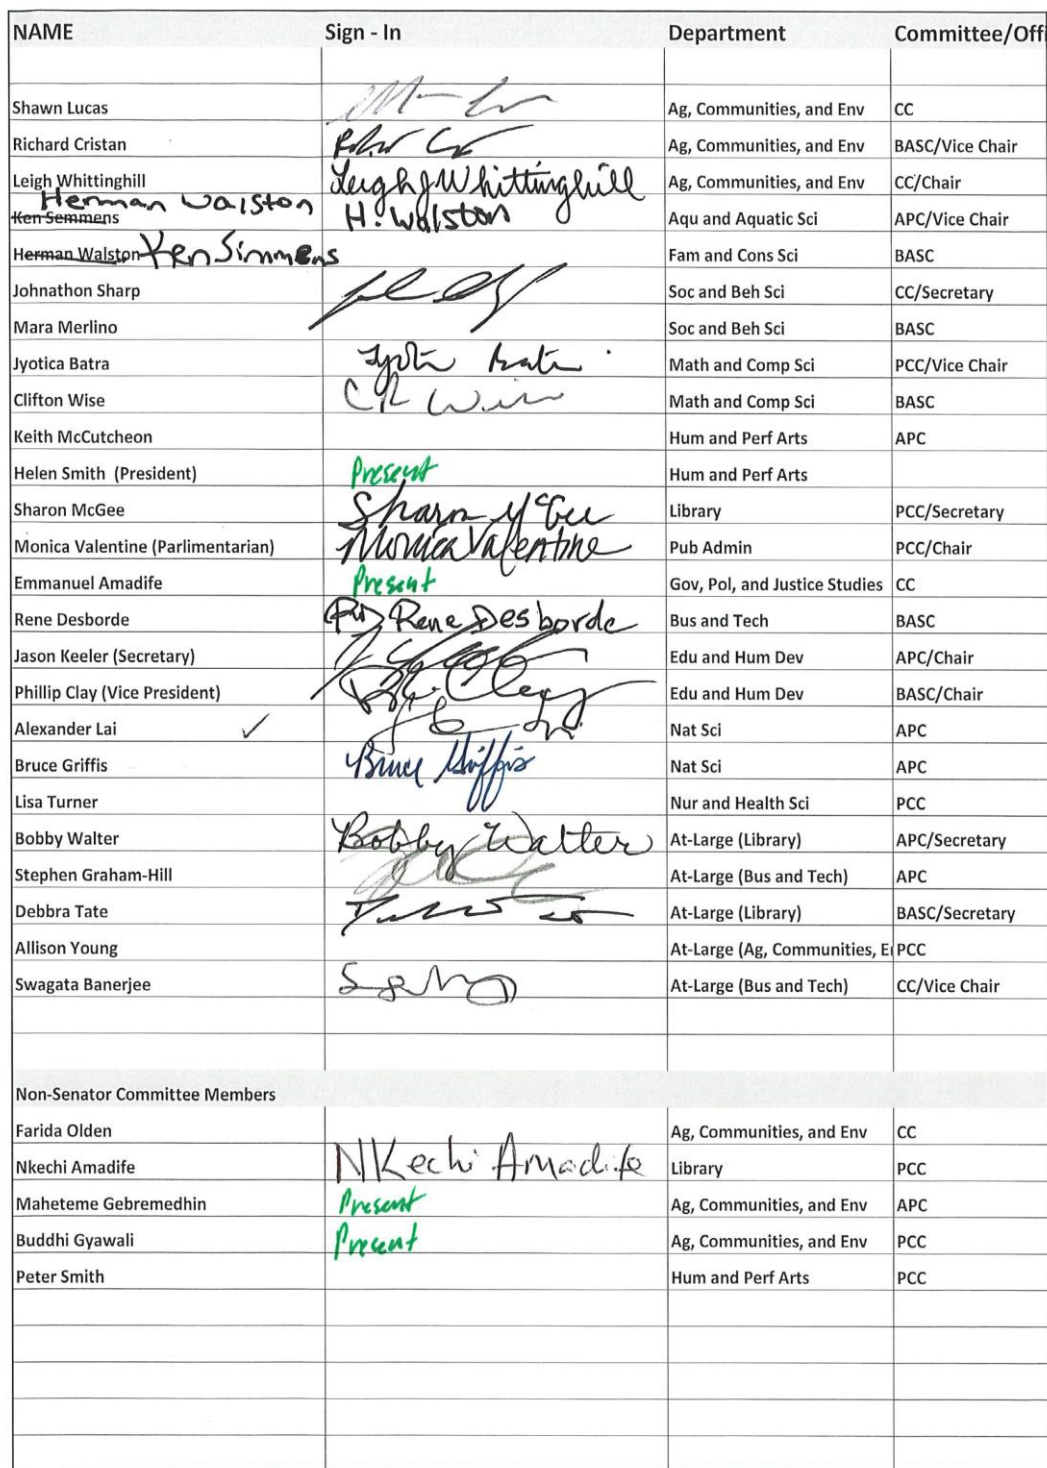 NAME Sign - In Department Committee/Offi
Shawn Lucas Ag, Communities, and Env CC
Richard Cristan Ag, Communities, and Env BASC/Vice Chair
Leigh Whittinghill Leigh J Whittinghill Ag, Communities, and Env CC/Chair
Herman Walston
Ken Semmens H. Walston Aqu and Aquatic Sci APC/Vice Chair
Herman Walston Ken Simmens Fam and Cons Sci BASC
Johnathon Sharp Soc and Beh Sci CC/Secretary
Mara Merlino Soc and Beh Sci BASC
Jyotica Batra Math and Comp Sci PCC/Vice Chair
Clifton Wise Math and Comp Sci BASC
Keith McCutcheon Hum and Perf Arts APC
Helen Smith (President) Present Hum and Perf Arts
Sharon McGee Sharon McGee Library PCC/Secretary
Monica Valentine (Parlimentarian) Monica Valentine Pub Admin PCC/Chair
Emmanuel Amadife Present Gov, Pol, and Justice Studies CC
Rene Desborde Rene Desborde Bus and Tech BASC
Jason Keeler (Secretary) Edu and Hum Dev APC/Chair
Phillip Clay (Vice President) Edu and Hum Dev BASC/Chair
Alexander Lai ✓ Nat Sci APC
Bruce Griffis Bruce Griffis Nat Sci APC
Lisa Turner Nur and Health Sci PCC
Bobby Walter Bobby Walter At-Large (Library) APC/Secretary
Stephen Graham-Hill At-Large (Bus and Tech) APC
Debbra Tate At-Large (Library) BASC/Secretary
Allison Young At-Large (Ag, Communities, E PCC
Swagata Banerjee At-Large (Bus and Tech) CC/Vice Chair
Non-Senator Committee Members
Farida Olden Ag, Communities, and Env CC
Nkechi Amadife NKechi Amadife Library PCC
Maheteme Gebremedhin Present Ag, Communities, and Env APC
Buddhi Gyawali Present Ag, Communities, and Env PCC
Peter Smith Hum and Perf Arts PCC